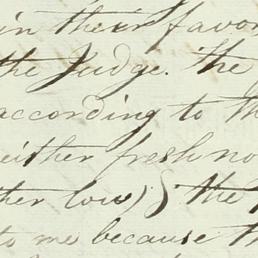 in their favor
the Judge. the
according to th
either fresh no
her low) & the
to me because th